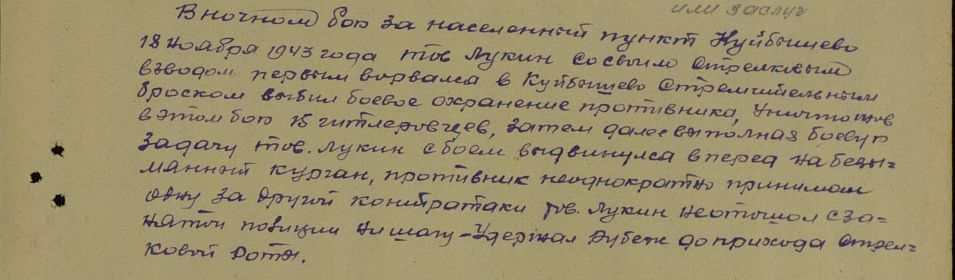 или заслуг
В ночном бою за населенный пункт Куйбышево
18 ноября 1943 года тов Лукин со свыим стрелковым
взводом первым ворвался в Куйбышево стремительным
броском выбил боевое охранение противника, уничтожив
в этом бою 15 гитлеровцев, затем далее выполняя боевую
задачу тов. Лукин с боем выдвинулся вперед на безы-
мянный курган, противник неоднократно принимал
одну за другой контратаки тов. Лукин не отошол с за-
нятой позиции ни шагу - удержал рубеж до прихода стрел-
ковой роты.